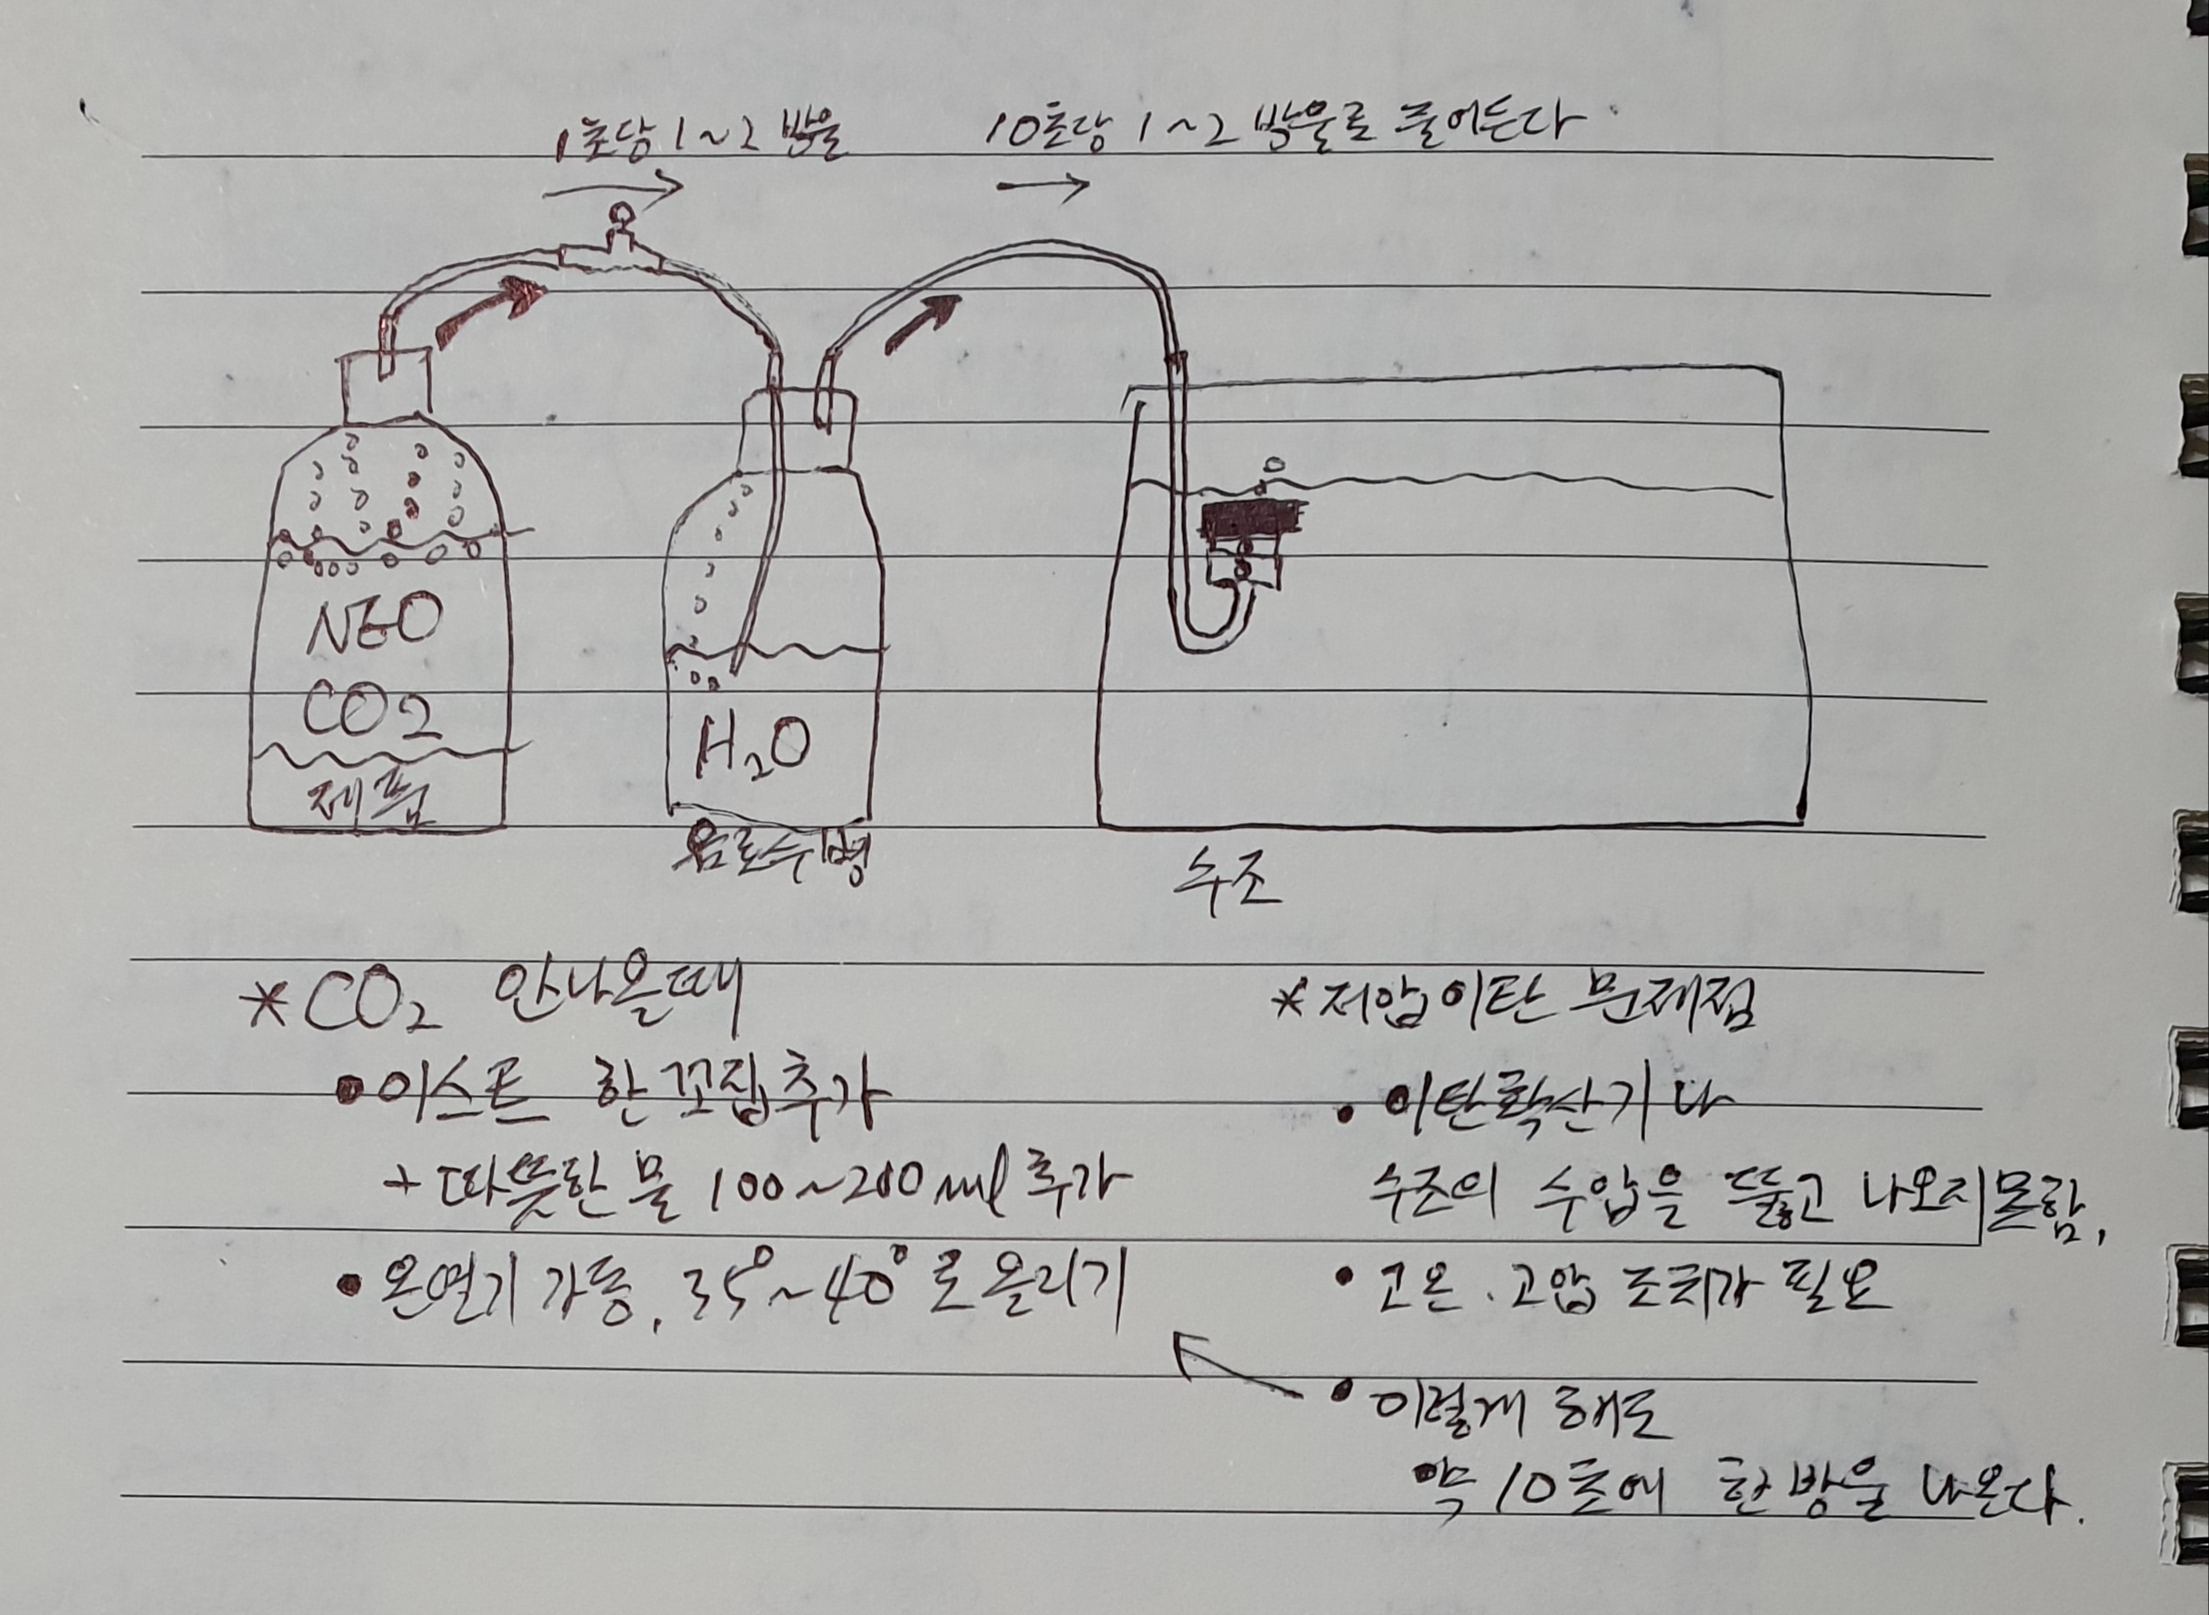 1초당 1~2 방울
10초당 1~2 방울로 줄어든다
NEO
CO2
제품
H₂O
음료수병
수조
*CO₂ 안나올때
• 이스트 한꼬집 추가
+ 따뜻한 물 100~200ml 추가
• 온열기 가동, 35°~40°로 올리기
*저압이탄 문제점
• 이탄확산기나
수조의 수압을 뚫고 나오지못함.
• 고온. 고압 조치가 필요
• 이렇게 해도
약 10초에 한방울 나온다.